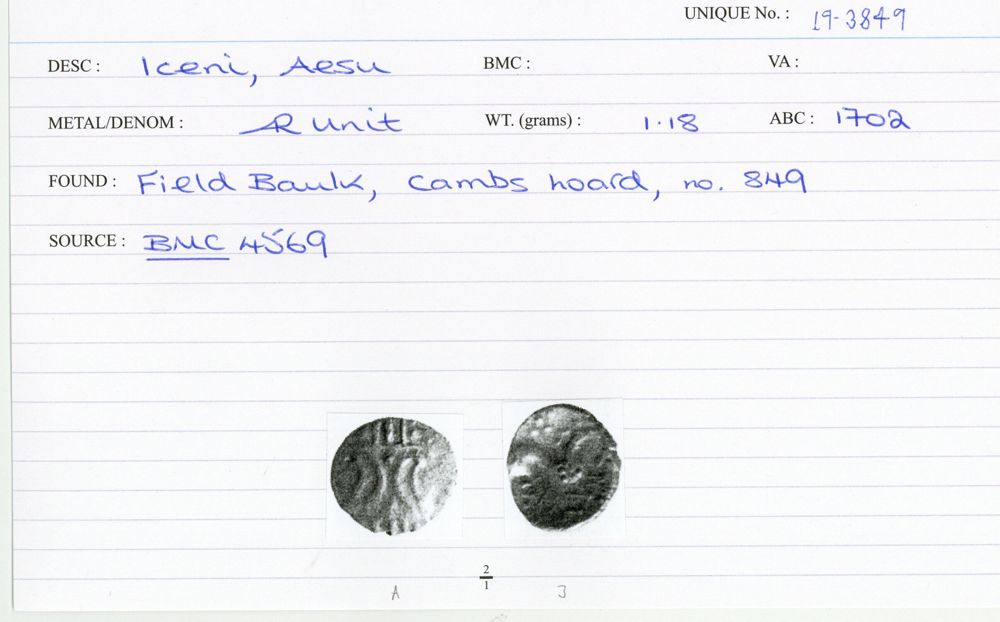 UNIQUE No. : 19-3849
DESC : Iceni, Aesu BMC : VA :
METAL/DENOM : ÆR Unit WT. (grams) : 1.18 ABC : 1702
FOUND : Field Baulk, Cambs hoard, no. 849
SOURCE : BMC 4569
2
1
A J